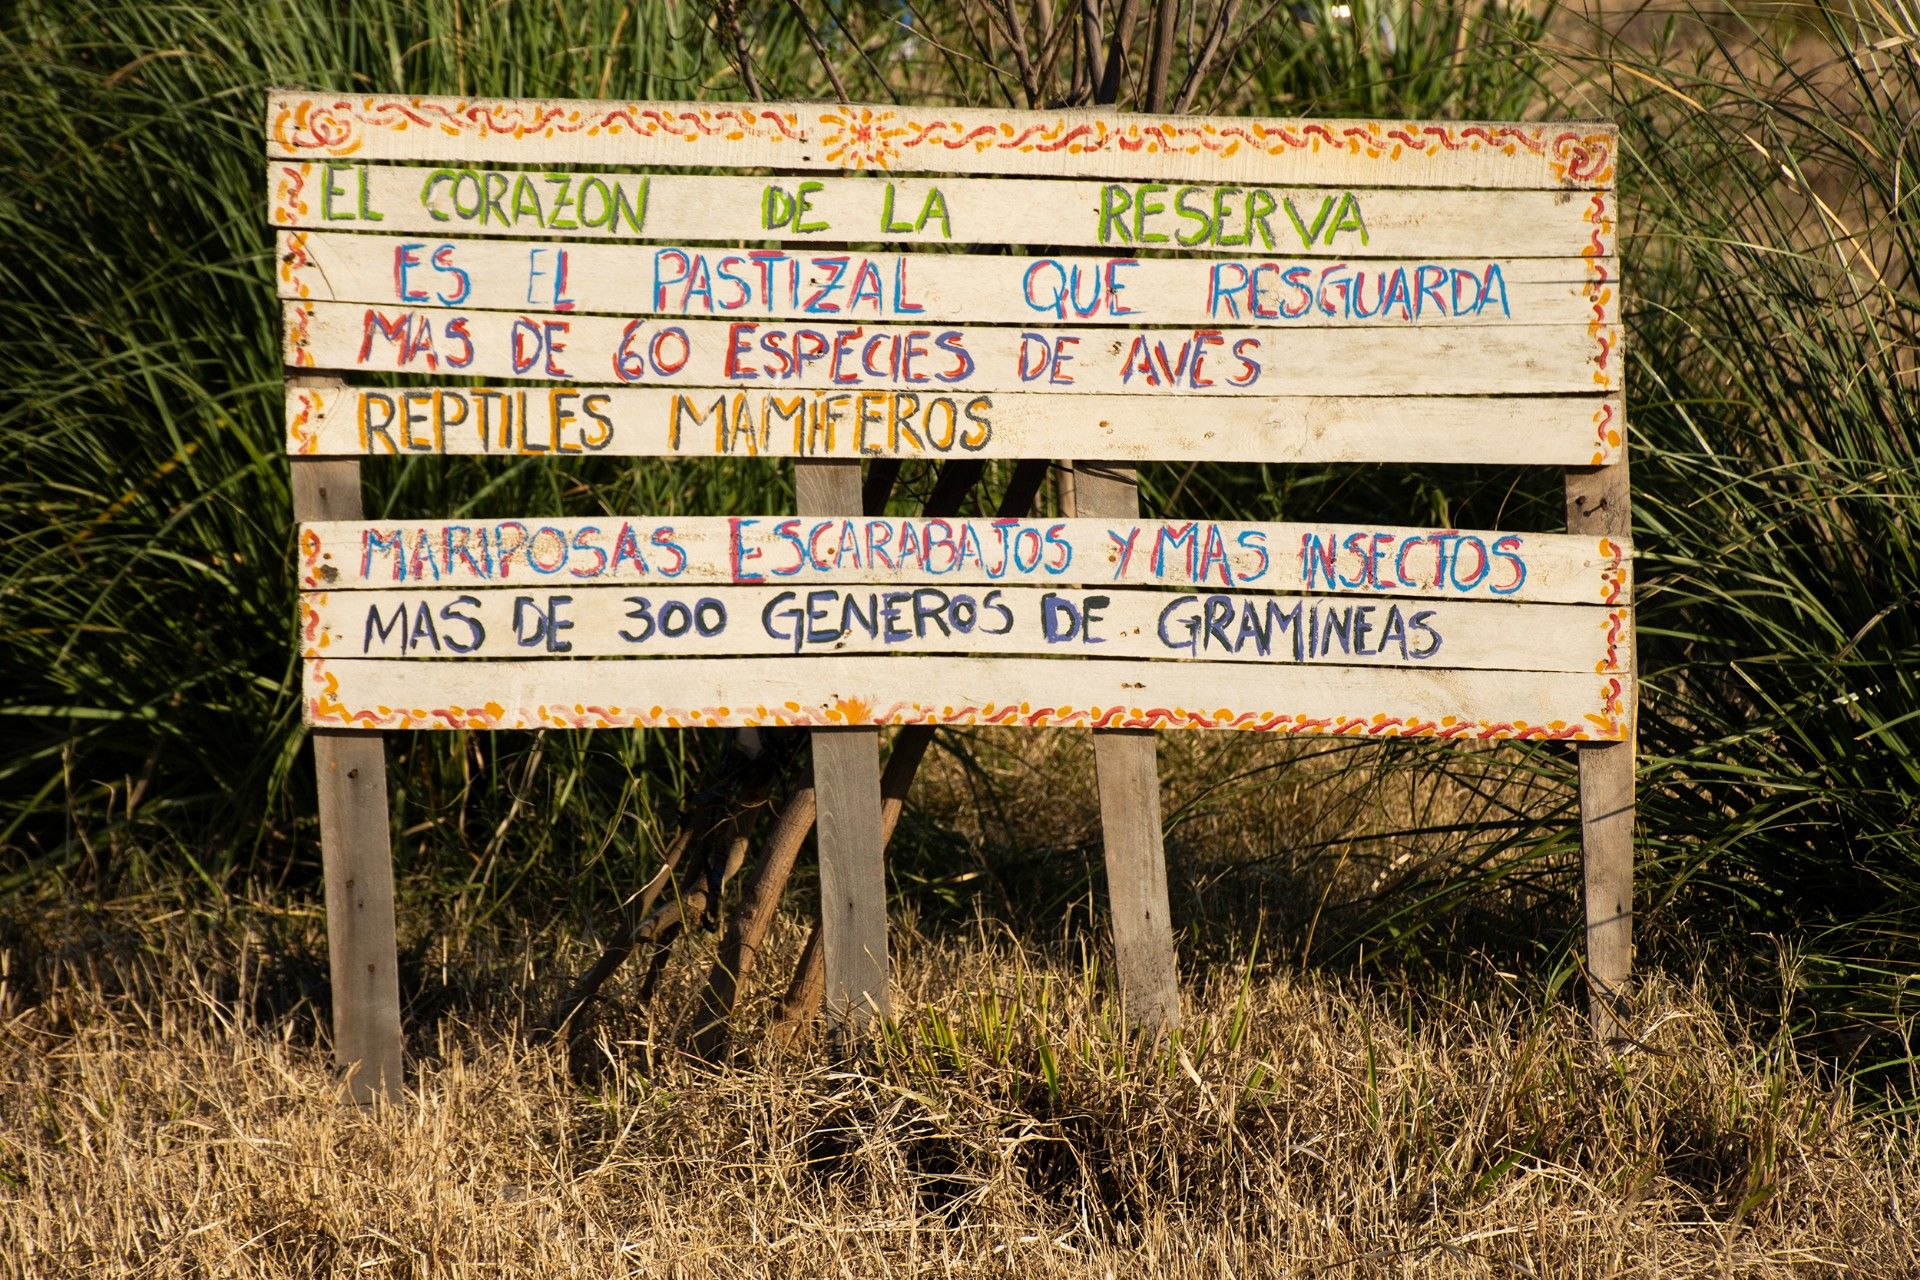 EL CORAZON DE LA RESERVA
ES EL PASTIZAL QUE RESGUARDA
MAS DE 60 ESPECIES DE AVES
REPTILES MAMÍFEROS
MARIPOSAS ESCARABAJOS Y MAS INSECTOS
MAS DE 300 GENEROS DE GRAMÍNEAS